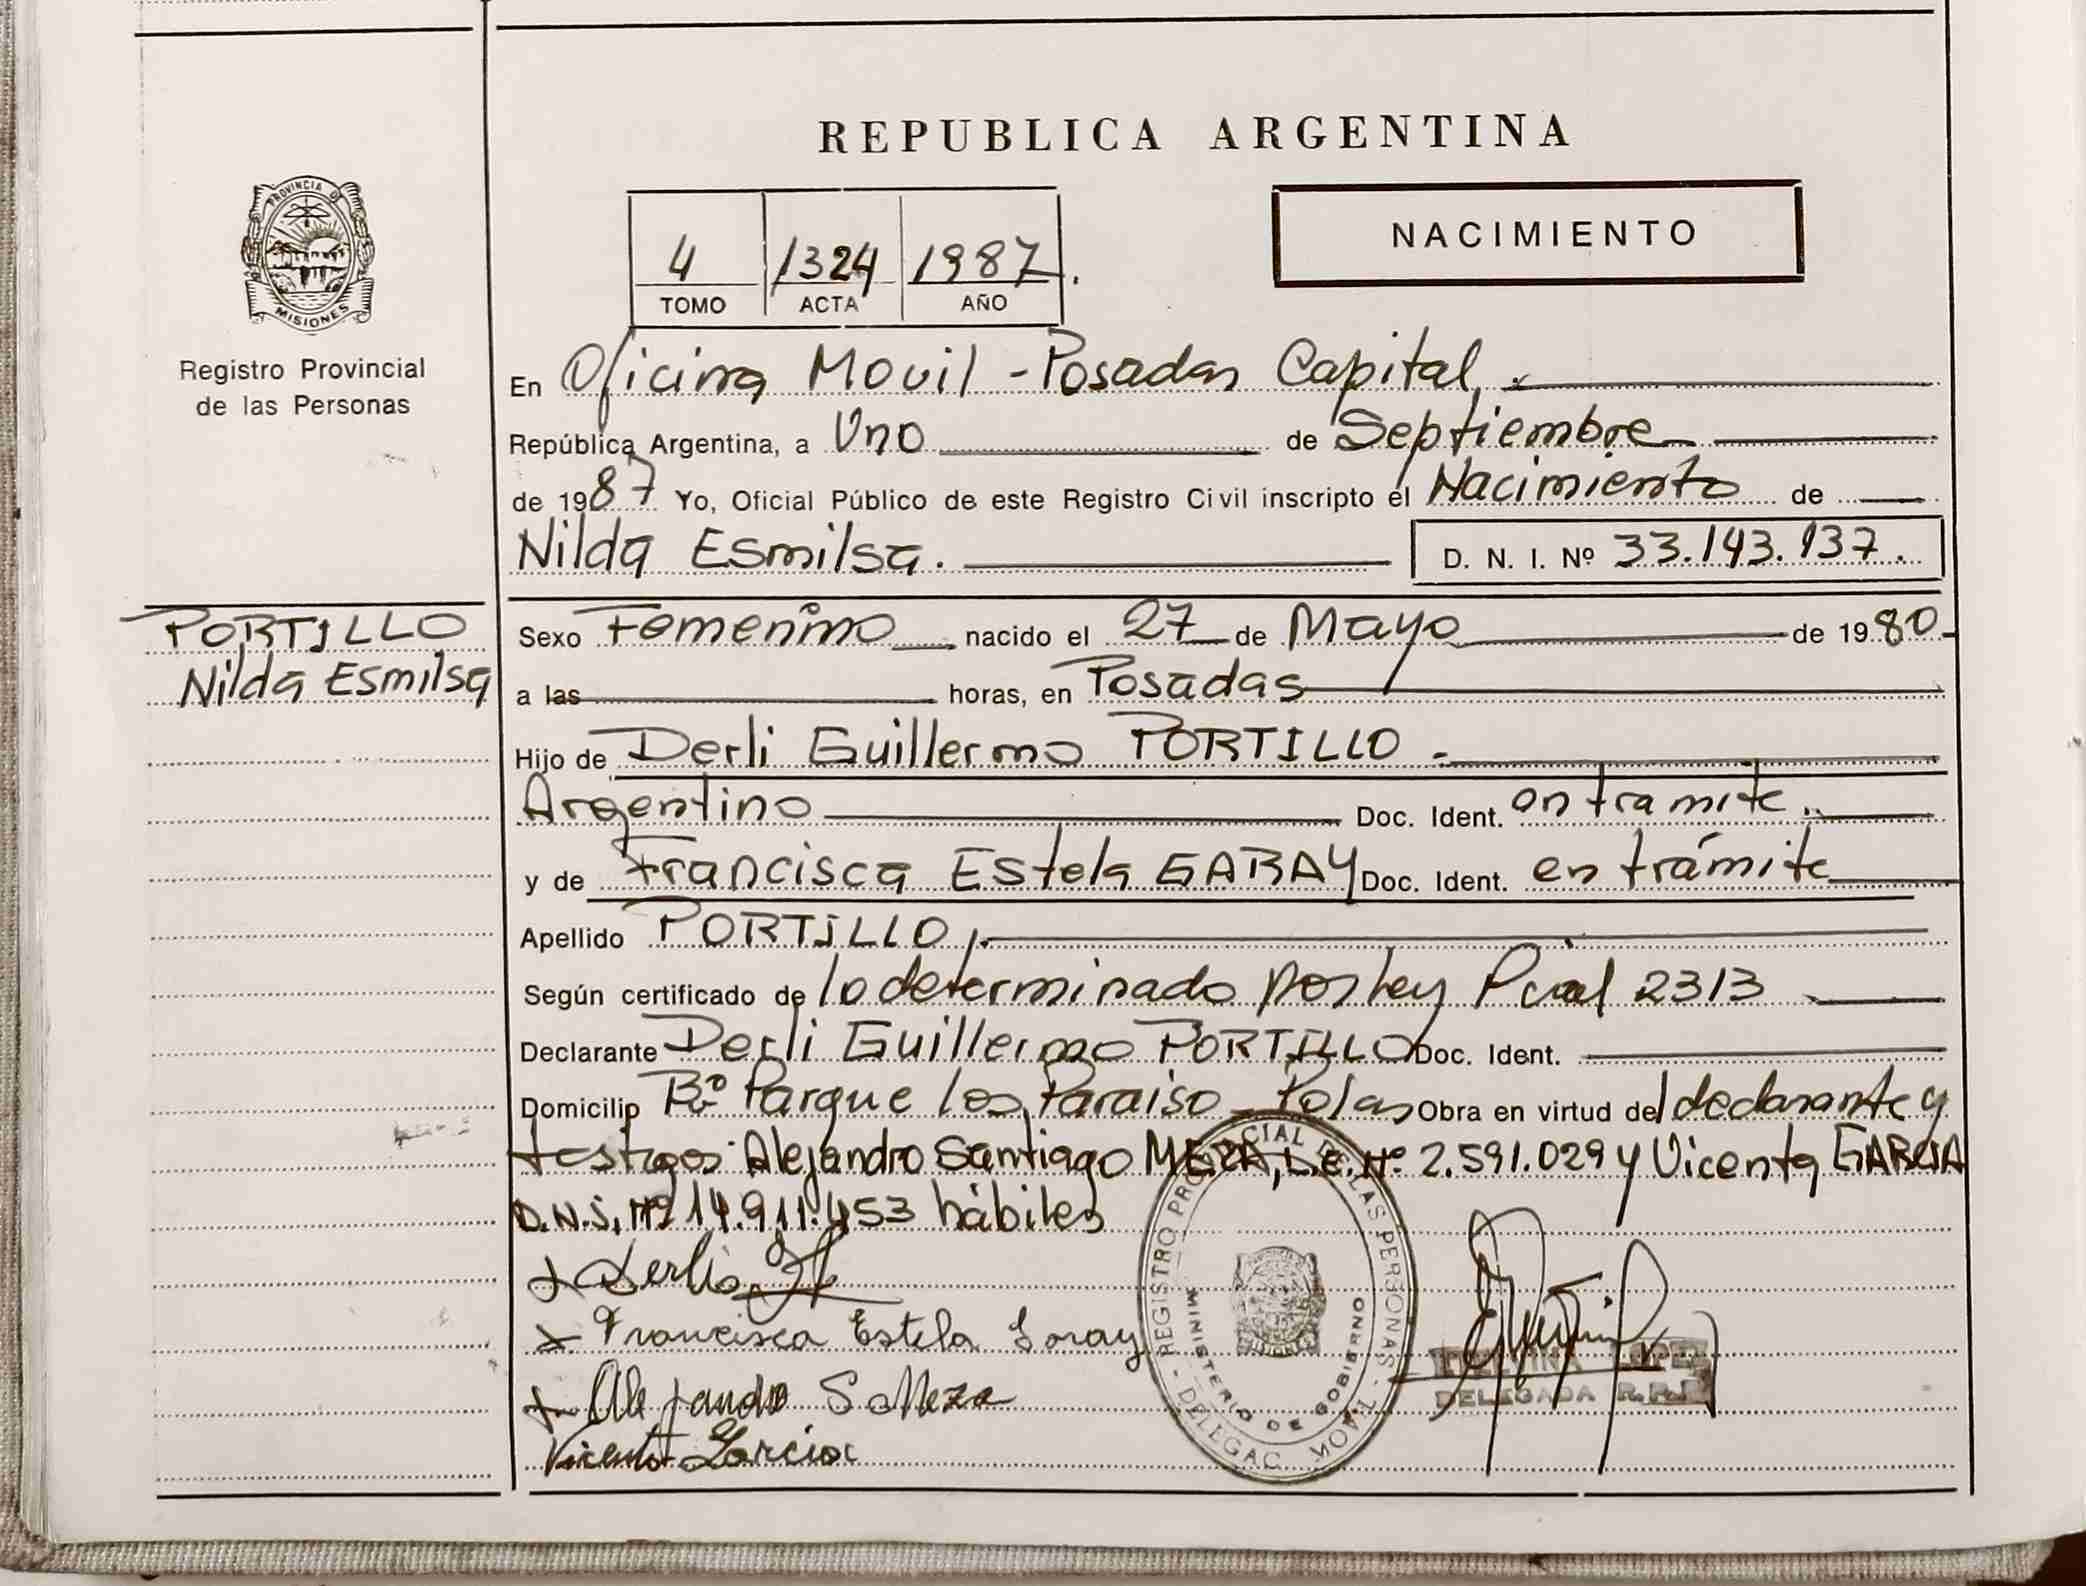 REPUBLICA ARGENTINA
PROVINCIA DE
MISIONES
Registro Provincial
de las Personas
4 1324 1987.
TOMO ACTA AÑO
NACIMIENTO
En Oficina Movil - Posadas Capital.
República Argentina, a Uno de Septiembre
de 1987 Yo, Oficial Público de este Registro Civil inscripto el Nacimiento de
Nilda Esmilsa. D. N. I. Nº 33.143.137.
PORTILLO
Nilda Esmilsa
Sexo Femenino nacido el 27 de Mayo de 1980
a las horas, en Posadas
Hijo de Derli Guillermo PORTILLO
Argentino Doc. Ident. en tramite
y de Francisca Estela GARAY Doc. Ident. en trámite
Apellido PORTILLO
Según certificado de lo determinado por ley Pcial 2313
Declarante Derli Guillermo PORTILLO Doc. Ident.
Domicilio Bº Parque los Paraiso - Pdas Obra en virtud del declarante y
testigos Alejandro Santiago MEZA, L.E. Nº 2.591.029 y Vicenta GARCIA
D.N.I. Nº 14.911.453 hábiles
Francisca Estela Garay
Alejandro S Meza
Vicenta Garcia
REGISTRO PROVINCIAL DE LAS PERSONAS - DELEGAC. MOVI
MINISTERIO DE GOBIERNO
DELEGADA R.P.P.